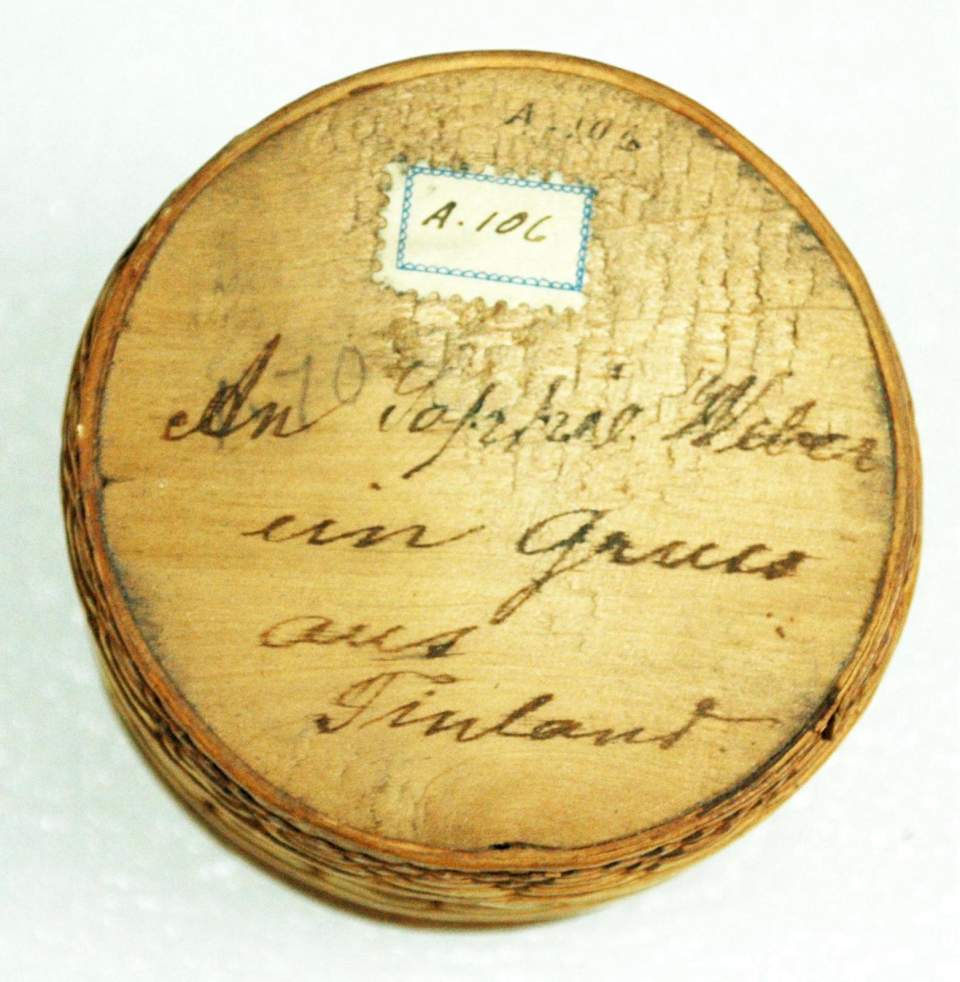 A.106
A.106
70
An Sophie Weber
ein Gruss
aus
Finland.